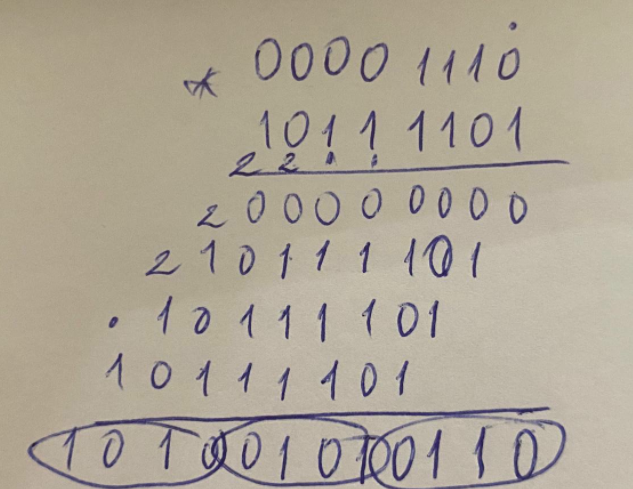 0000 1110
* 1011 1101
2 2 . .
2 0000 0000
2 10111101
. 10111101
10111101
1010 0101 0110